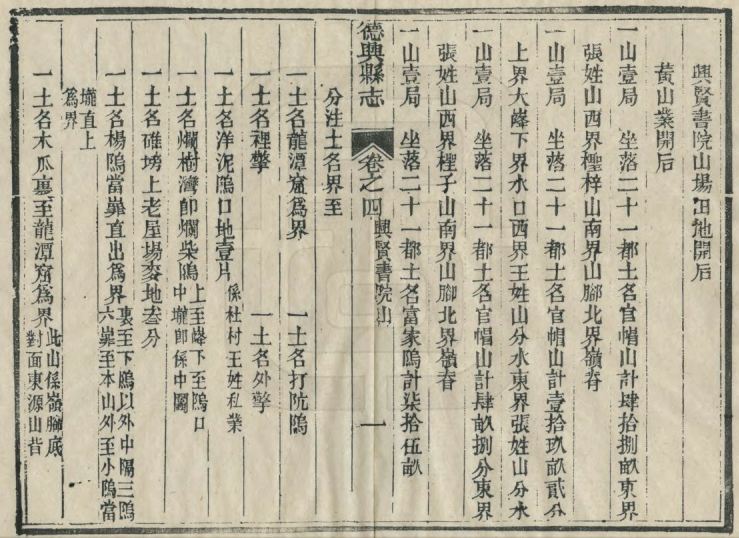 興賢書院山場田地開后
黃山業開后
一山壹局 坐落二十一都土名官帽山計肆拾捌畝東界
張姓山西界桱梓山南界山腳北界嶺脊
一山壹局 坐落二十一都土名官帽山計壹拾玖畝貳分
上界大峰下界水口西界王姓山分水東界張姓山分水
一山壹局 坐落二十一都土名官帽山計肆畝捌分東界
張姓山西界桱子山南界山腳北界嶺脊
一山壹局 坐落二十一都土名富家塢計柒拾伍畝
德興縣志 卷之四 興賢書院山 一
分注土名界至
一土名龍潭窟為界 一土名打阬塢
一土名裡擎 一土名外擎
一土名洋泥塢口地壹片 係杜村王姓私業
一土名爛樹灣卽爛柴塢 上至峰下至塢口
中壠卽係中園
一土名碓塝上老屋場麥地叁分
一土名楊塢當崋直出為界 裏至下塢以外中隔三塢
六崋至本山外至小塢當
壠直上
為界
一土名木瓜裏至龍潭窟為界 此山係嶺腳底
對面東源山背